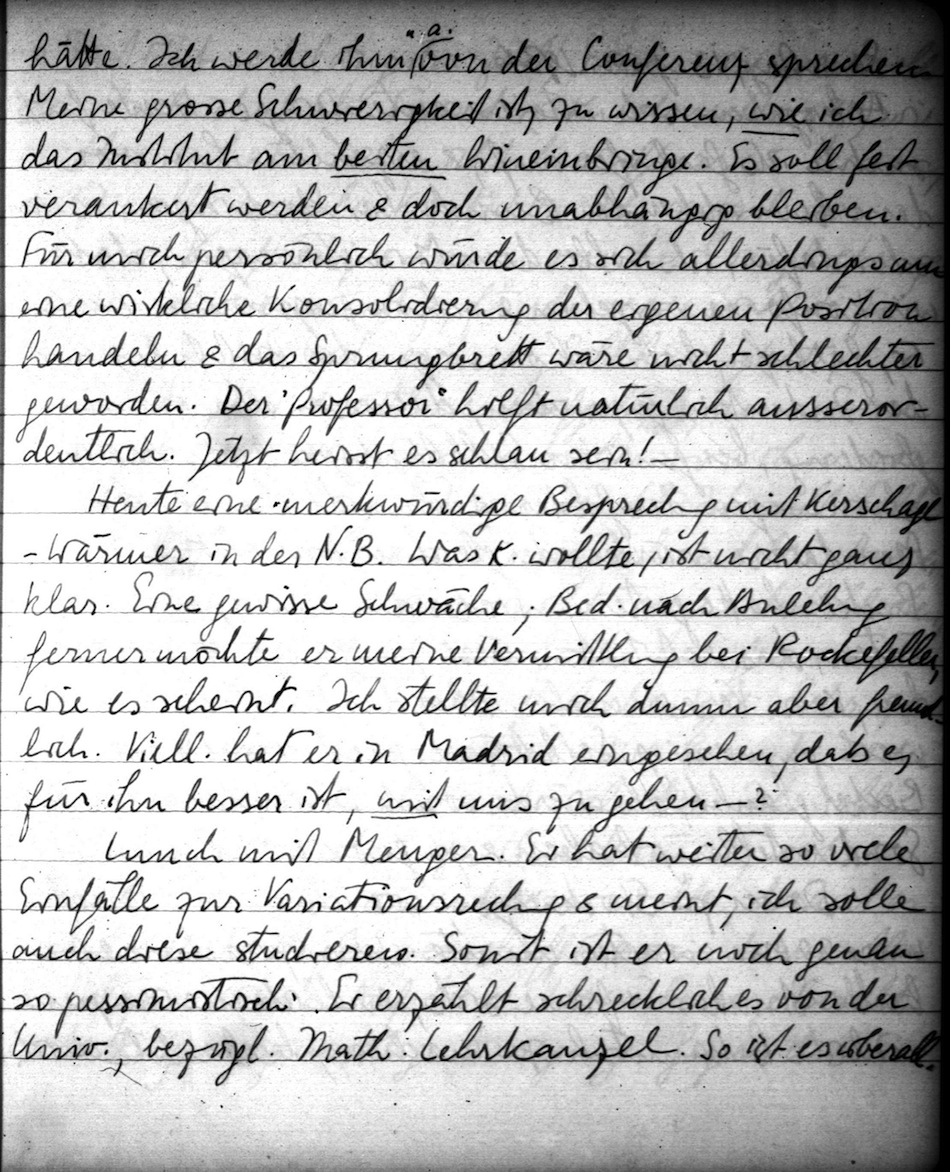 hätte. Ich werde ihm u. a. von der Conferenz sprechen.
Meine grosse Schwierigkeit ist, zu wissen, wie ich
das Institut am besten hineinbringe. Es soll fest
verankert werden & doch unabhängig bleiben.
Für mich persönlich würde es sich allerdings um
eine wirkliche Konsolidierung der eigenen Position
handeln & das Sprungbrett wäre nicht schlechter
geworden. Der "Professor" hilft natürlich ausseror-
dentlich. Jetzt heisst es schlau sein! –
Heute eine merkwürdige Besprechg mit Kerschagl
- Wärmer in der N.B. Was K. wollte, ist nicht ganz
klar. Eine gewisse Schwäche, Bed. nach Anlehng
ferner möchte er meine Vermittlung bei Rockefeller,
wie es scheint. Ich stellte mich dumm aber freund-
lich. Viell. hat er in Madrid eingesehen, dass es
für ihn besser ist, mit uns zu gehen – ?
Lunch mit Menger. Er hat weiter so viele
Einfälle zur Variationsrechng & meint, ich solle
auch diese studieren. Sonst ist er noch genau
so pessimistisch. Er erzählt schreckliches von der
Univ., bezügl. Math. Lehrkanzel. So ist es überall.